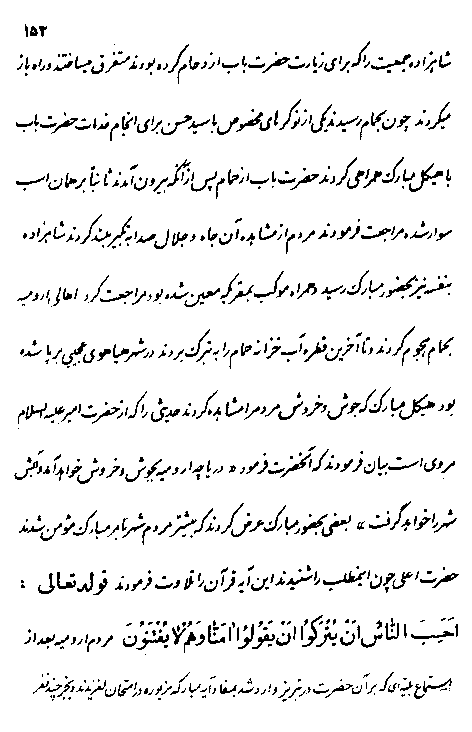 ۱۵۳
شاهزاده جمعیت را که برای زیارت حضرت باب ازدحام کرده بودند متفرق میساختند و راه باز
میکردند چون بحمام رسیدند یکی از نوکرهای مخصوص با سید حسن برای انجام خدمات حضرت باب
با هیکل مبارک همراهی کردند حضرت باب از حمام پس از آنکه بیرون آمدند ثانیاً بر همان اسب
سوار شده مراجعت فرمودند مردم از مشاهده آن جاه و جلال صدا به تکبیر بلند کردند شاهزاده
بنفسه نیز بحضور مبارک رسید و همراه موکب بمقریکه معین شده بود مراجعت کرد اهالی ارومیه
بحمام هجوم کردند و تا آخرین قطره آب خزانه حمام را به تبرک بردند در شهر هیاهوی عجیبی برپا شده
بود هیکل مبارک که جوش و خروش مردم را مشاهده کردند حدیثی را که از حضرت امیر علیه السلام
مروی است بیان فرمودند که آنحضرت فرمود « دریاچه ارومیه بجوش و خروش خواهد آمد و آبش
شهر را خواهد گرفت » بعضی بحضور مبارک عرض کردند که بیشتر مردم شهر بامر مبارک مؤمن شدند
حضرت اعلی چون اینمطلب را شنیدند این آیه قرآن را تلاوت فرمودند قوله تعالی :
اَحَسِبَ النّاسُ اَنْ یُتْرَکُوا اَنْ یَقُولُوا امَنّا وَهُمْ لا یُفْتَنُونَ مردم ارومیه بعد از
استماع بلیّه‌ای که بر آن حضرت در تبریز وارد شد بمفاد آیه مبارکه مزبوره در امتحان لغزیدند و بجز چند نفر